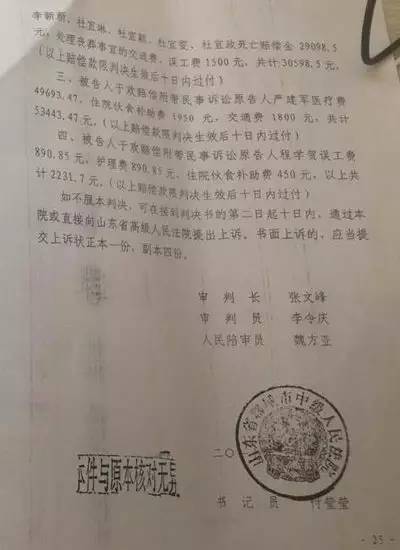 李新朋、杜宜琳、杜宜颖、杜宜雯、杜宜政死亡赔偿金 29098.5
元,处理丧葬事宜的交通费、误工费 1500 元,共计 30598.5 元,
(以上赔偿款限判决生效后十日内过付)
三、被告人于欢赔偿附带民事诉讼原告人严建军医疗费
49693.47、住院伙食补助费 1950 元,交通费 1800 元,共计
53443.47 元,(以上赔偿款限判决生效后十日内过付)
四、被告人于欢赔偿附带民事诉讼原告人程学贺误工费
890.85 元,护理费 890.85 元,住院伙食补助费 450 元,以上共
计 2231.7 元,(以上赔偿款限判决生效后十日内过付)
如不服本判决,可在接到判决书的第二日起十日内,通过本
院或直接向山东省高级人民法院提出上诉。书面上诉的,应当提
交上诉状正本一份,副本四份。
审 判 长 张文峰
审 判 员 李令庆
人民陪审员 魏方亚
二〇
山东省聊城市中级人民法院
件与原本核对无异
书 记 员 付莹莹
- 25 -